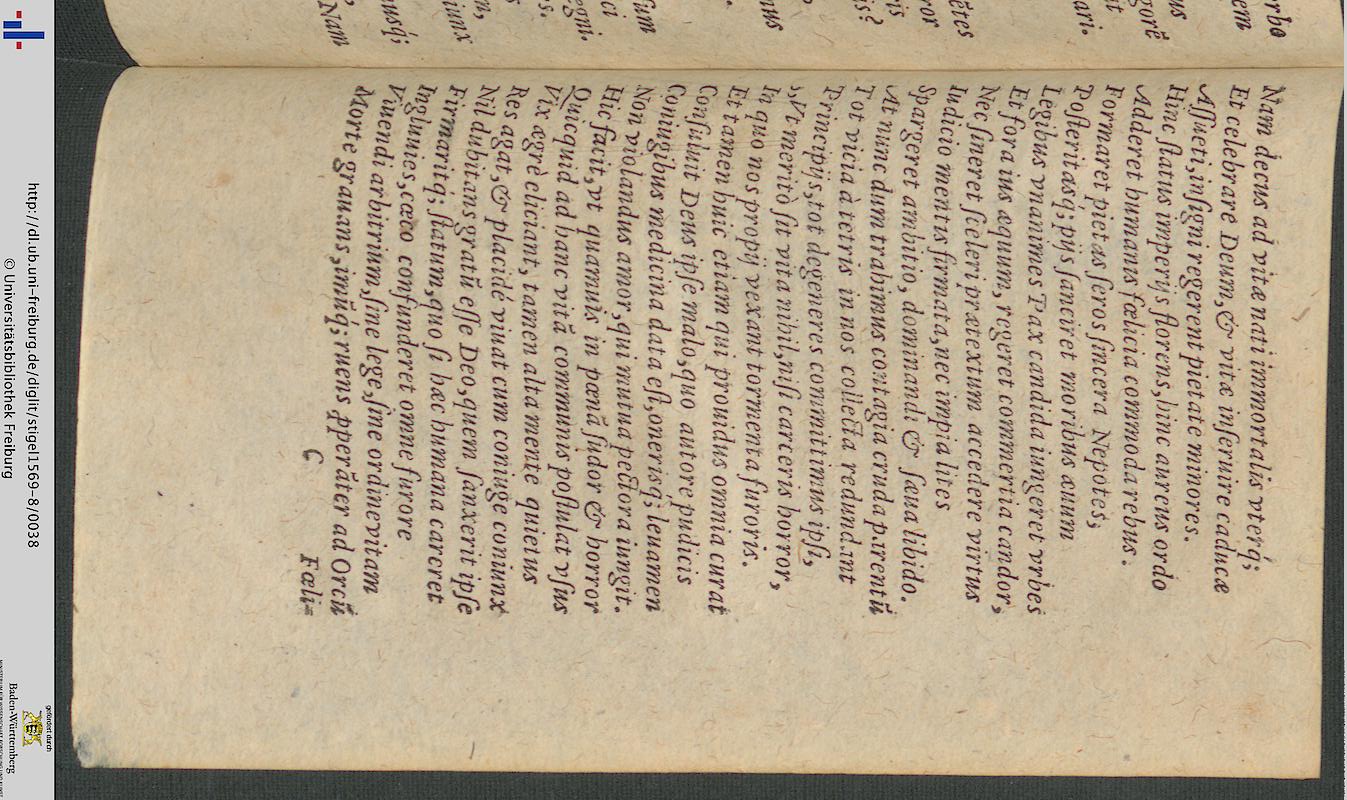 Nam decus ad vitæ nati immortalis vterq́;
Et celebrare Deum, & vitæ inseruire caducæ
Assueti, insigni regerent pietate minores.
Hinc status imperijs florens, hinc aureus ordo
Adderet humanis fœlicia commoda rebus.
Formaret pietas seros sincera Nepotes,
Posteritasq́; pijs sanciret moribus æuum
Legibus vnanimes Pax candida iungeret vrbes
Et fora ius æquum, regeret commertia candor,
Nec sineret sceleri prætextum accedere virtus
Iudicio mentis firmata, nec impia lites
Spargeret ambitio, dominandi & sæua libido.
At nunc dum trahimus contagia cruda parentū
Tot vicia à tetris in nos collecta redundant
Principijs, tot degeneres committimus ipsi,
,,Vt meritò sit vita nihil, nisi carceris horror,
In quo nos proprij vexant tormenta furoris.
Et tamen huic etiam qui prouidus omnia curat
Consuluit Deus ipse malo, quo autore pudicis
Coniugibus medicina data est, onerisq́; leuamen
Non violandus amor, qui mutua pectora iungit.
Hic facit, vt quamuis in pœnā sudor & horror
Quicquid ad hanc vitā communis postulat vsus
Vix ægrè eliciant, tamen alta mente quietus
Res agat, & placidè viuat cum coniuge coniunx
Nil dubitans gratū esse Deo, quem sanxerit ipse
Firmaritq́; statum, quo si hæc humana careret
Ingluuies, cæco confunderet omne furore
Viuendi arbitrium, sine lege, sine ordine vitam
Morte grauans, imūq́; ruens pperāter ad Orcū
C Fœli-
erbo
em
gorē
us
it
ari.
ētes
ror
ris
is?
nus
sum
ci
egni.
s.
iunx
n,
ausq́;
Nam
http://dl.ub.uni-freiburg.de/diglit/stigel1569-8/0038
© Universitätsbibliothek Freiburg
gefördert durch
Baden-Württemberg